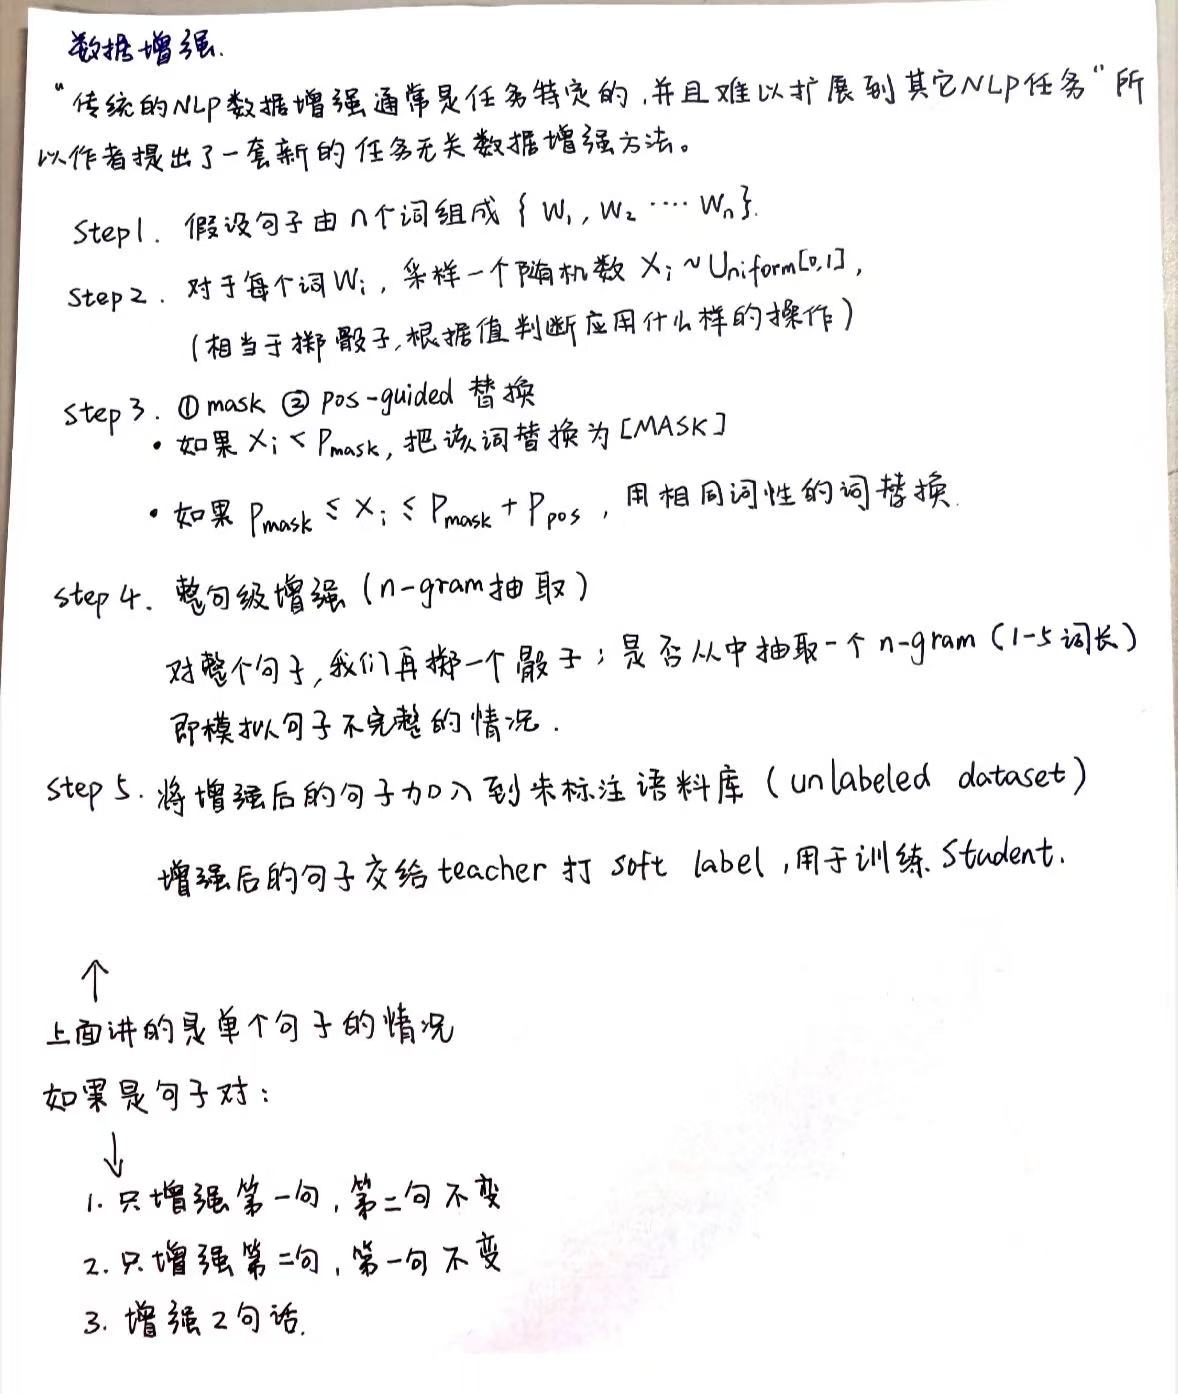 数据增强.
“传统的NLP数据增强通常是任务特定的,并且难以扩展到其它NLP任务”所
以作者提出了一套新的任务无关数据增强方法。
Step1. 假设句子由n个词组成 { W₁, W₂ ···· Wₙ}.
Step2. 对于每个词Wᵢ, 采样一个随机数 Xᵢ ~ Uniform[0,1],
(相当于掷骰子,根据值判断应用什么样的操作)
Step3. ① mask ② pos-guided 替换
• 如果 Xᵢ < Pmask, 把该词替换为[MASK]
• 如果 Pmask ≤ Xᵢ ≤ Pmask + Ppos, 用相同词性的词替换.
step4. 整句级增强 (n-gram抽取)
对整个句子,我们再掷一个骰子;是否从中抽取一个 n-gram (1-5词长)
即模拟句子不完整的情况.
Step5. 将增强后的句子加入到未标注语料库 (unlabeled dataset)
增强后的句子交给teacher打 soft label,用于训练Student.
↑
上面讲的是单个句子的情况
如果是句子对:
↓
1. 只增强第一句,第二句不变
2. 只增强第二句,第一句不变
3. 增强2句话.